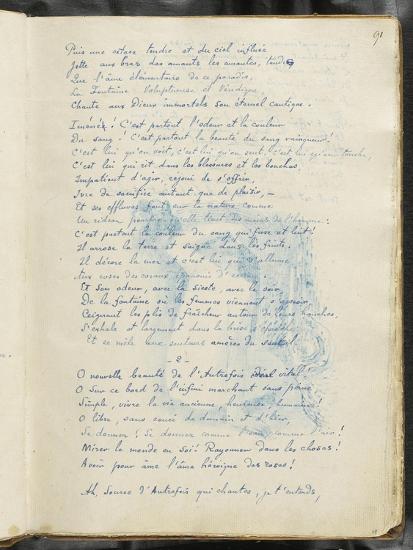 91
Puis une extase tendre et du ciel influée
Jette aux bras des amants les amantes, tendes
Que l'âme élémentaire de ce paradis,
La Fontaine Voluptueuse et Véridique,
Chante aux Dieux immortels son éternel cantique.
C'est partout l'odeur et la couleur
Du sang ! C'est partout la beauté du sang vainqueur !
C'est lui qu'on voit, c'est lui qu'on sent, c'est lui qu'on touche,
C'est lui qui rit dans les blessures et les bouches,
Impatient d'agir, réjoui de s'offrir,
Ivre de sacrifice autant que de plaisir, —
Et ses effluves font sur la nature comme
Un rideau
C'est partout la couleur du sang qui fuse et luit !
Il arrose la terre et saigne dans les fruits.
Il décore la mer et c'est lui qui s'allume
Aux roses des coraux
Et son odeur, avec la sieste, avec le soir,
De la fontaine où les femmes viennent s'asseoir,
Ceignant les plis de fraîcheur autour de leurs hanches,
S'exhale et largement dans la brise
Et se mêle aux senteurs amères du santal.
- 2 -
O nouvelle beauté de l'Autrefois idéal vital !
O sur ce bord de l'infini marchant sans peine
Simple, vivre la vie ancienne, heureuse, humaine !
O libre, sans souci de demain et d'hier,
Se donner ! Se donner comme l'eau, comme l'air !
Mirer le monde en soi ! Rayonner dans les choses !
Avoir pour âme l'âme héroïque des roses !
Ah, Source d'Autrefois qui chantes, je t'entends,